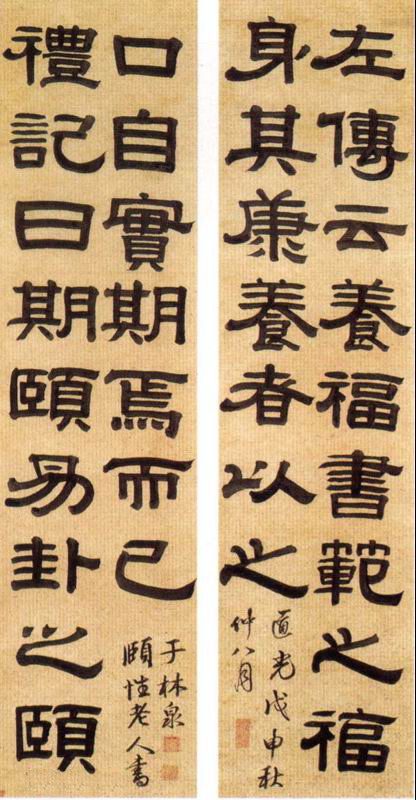 左傳云養福書範之福
身其康養者以之
道光戊申秋
仲八月
禮記曰期頤易卦之頤
口自實期焉而已
頤性老人書
于林泉